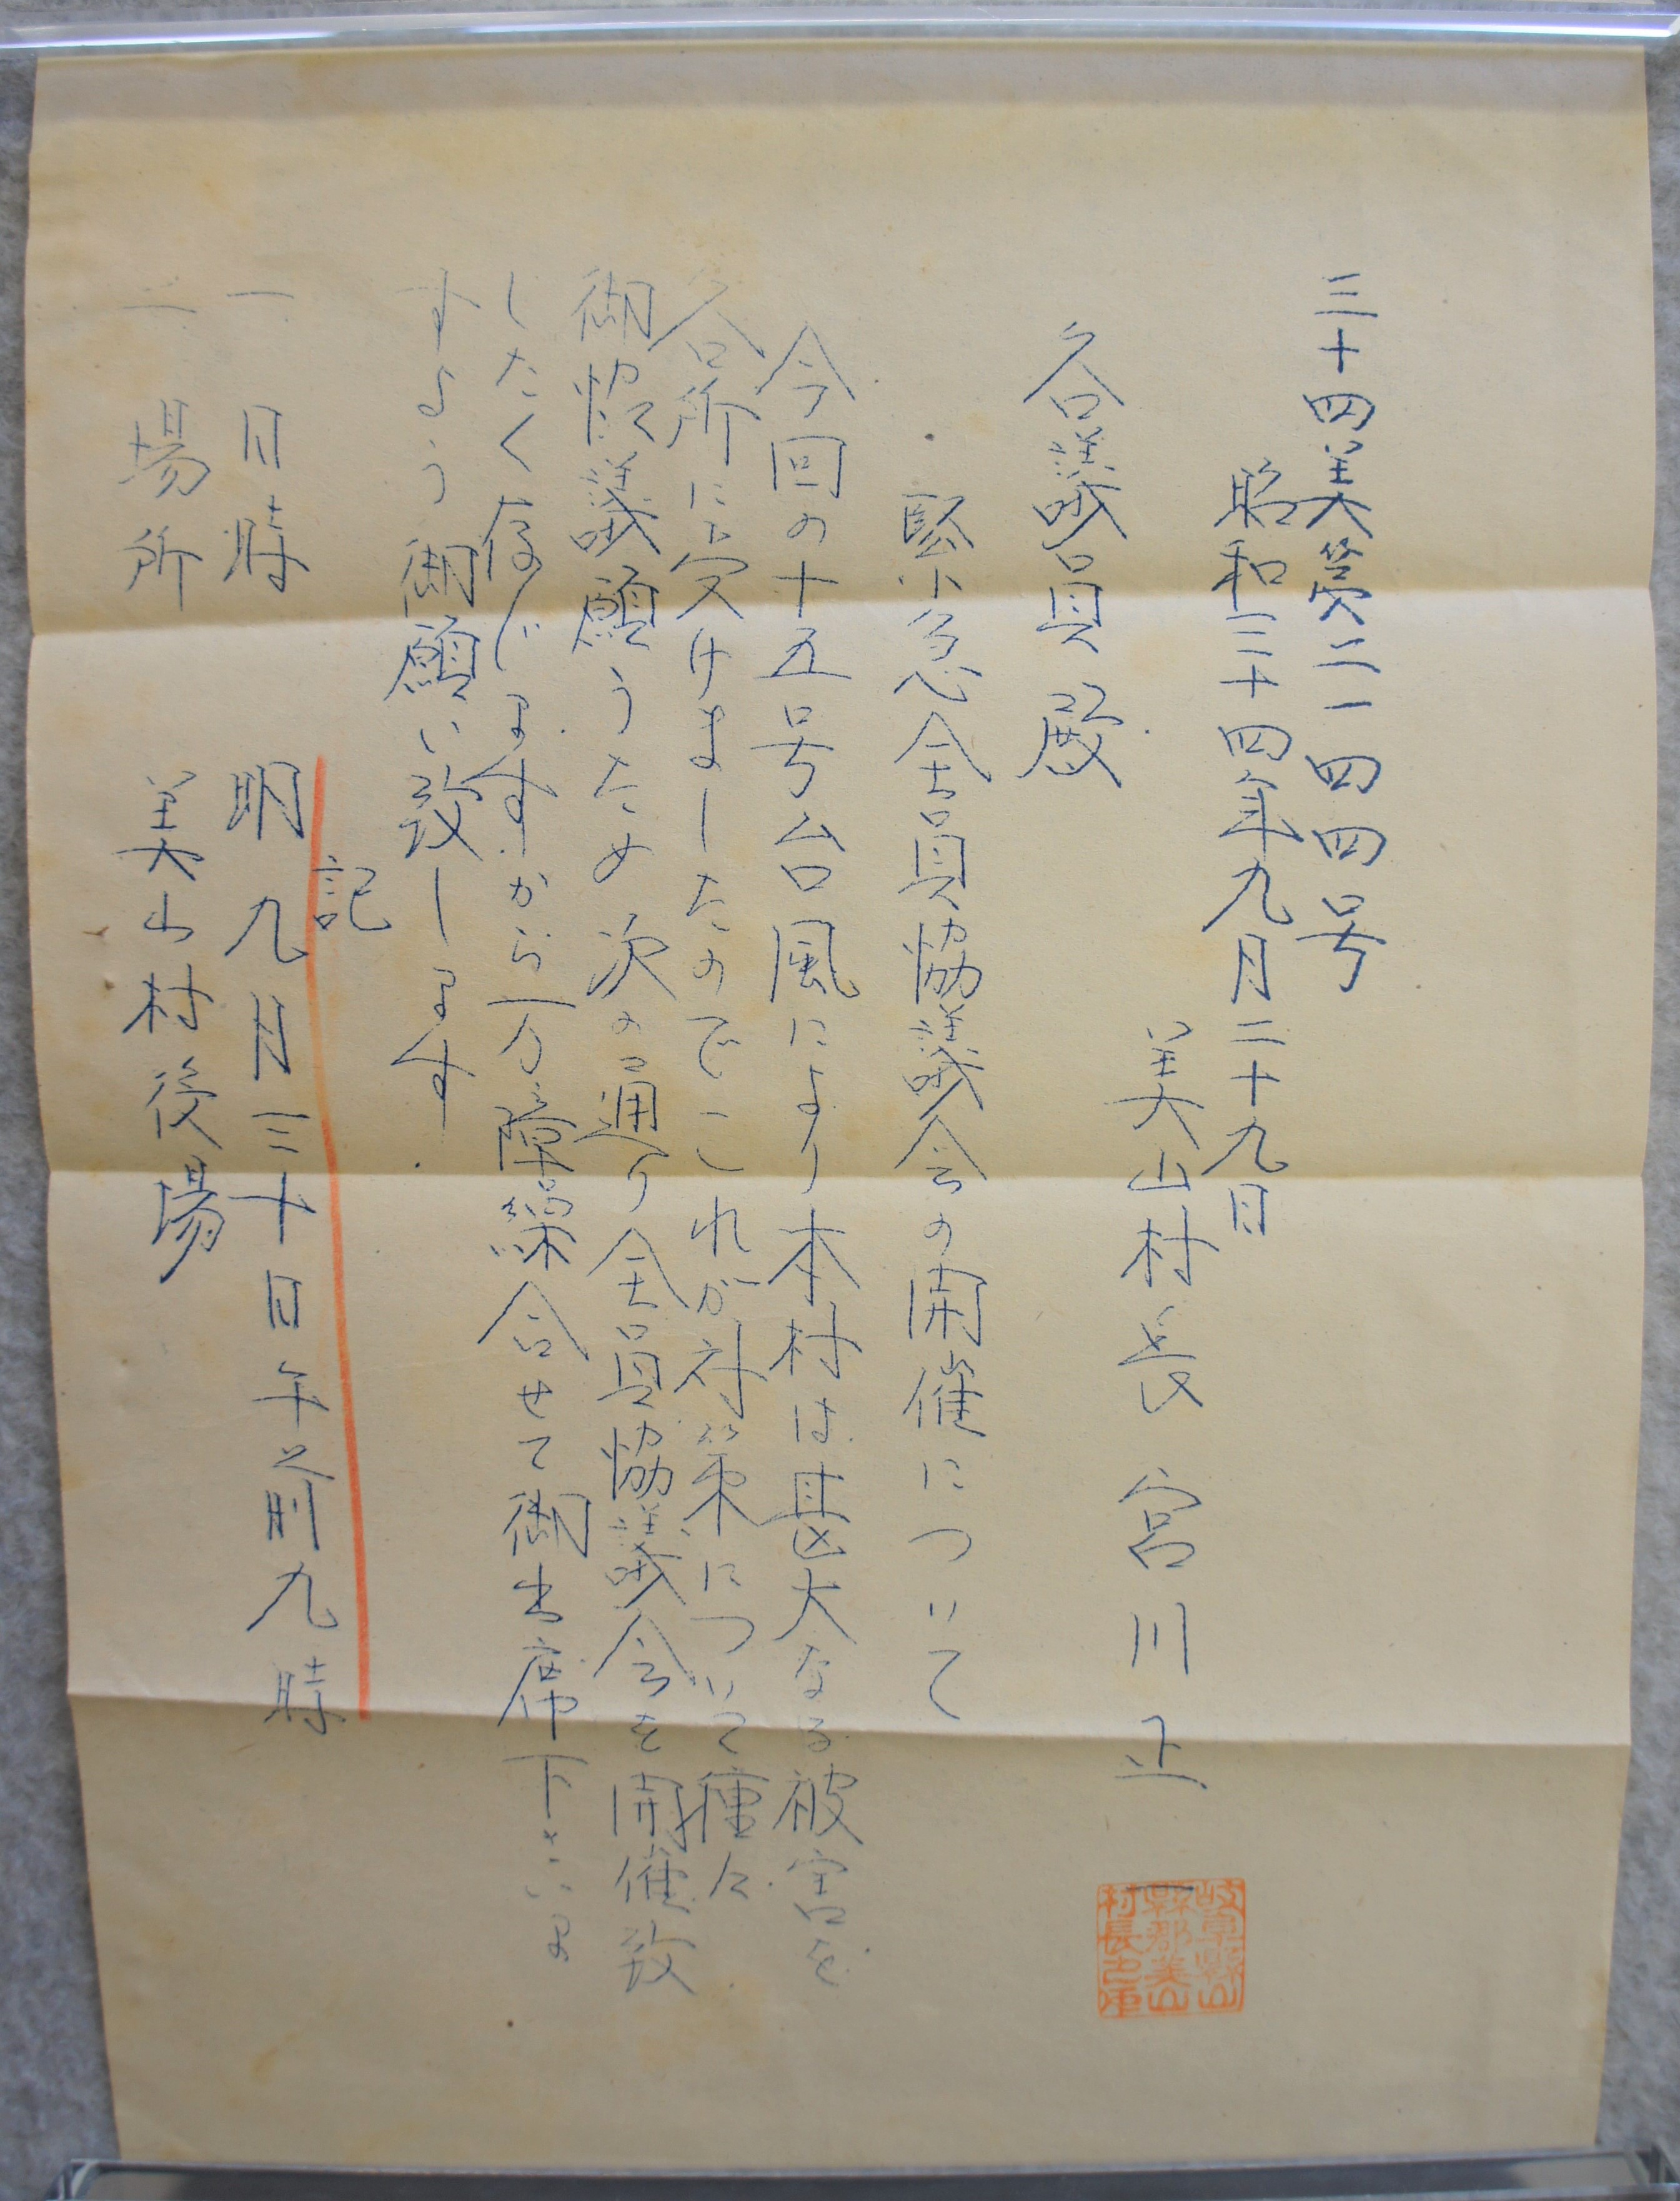 三十四美第二一四四号
昭和三十四年九月二十九日
美山村長　宮川正一
岐阜縣山縣郡美山村長之印
各議員殿
緊急全員協議会の開催について
今回の十五号台風により本村は甚大なる被害を
各所に受けましたのでこれが対策について種々
御協議願うため次の通り全員協議会を開催致
したく存じますから万障繰合せて御出席下さいま
すよう御願い致します
記
一、日時　明九月三十日午前九時
二、場所　美山村役場